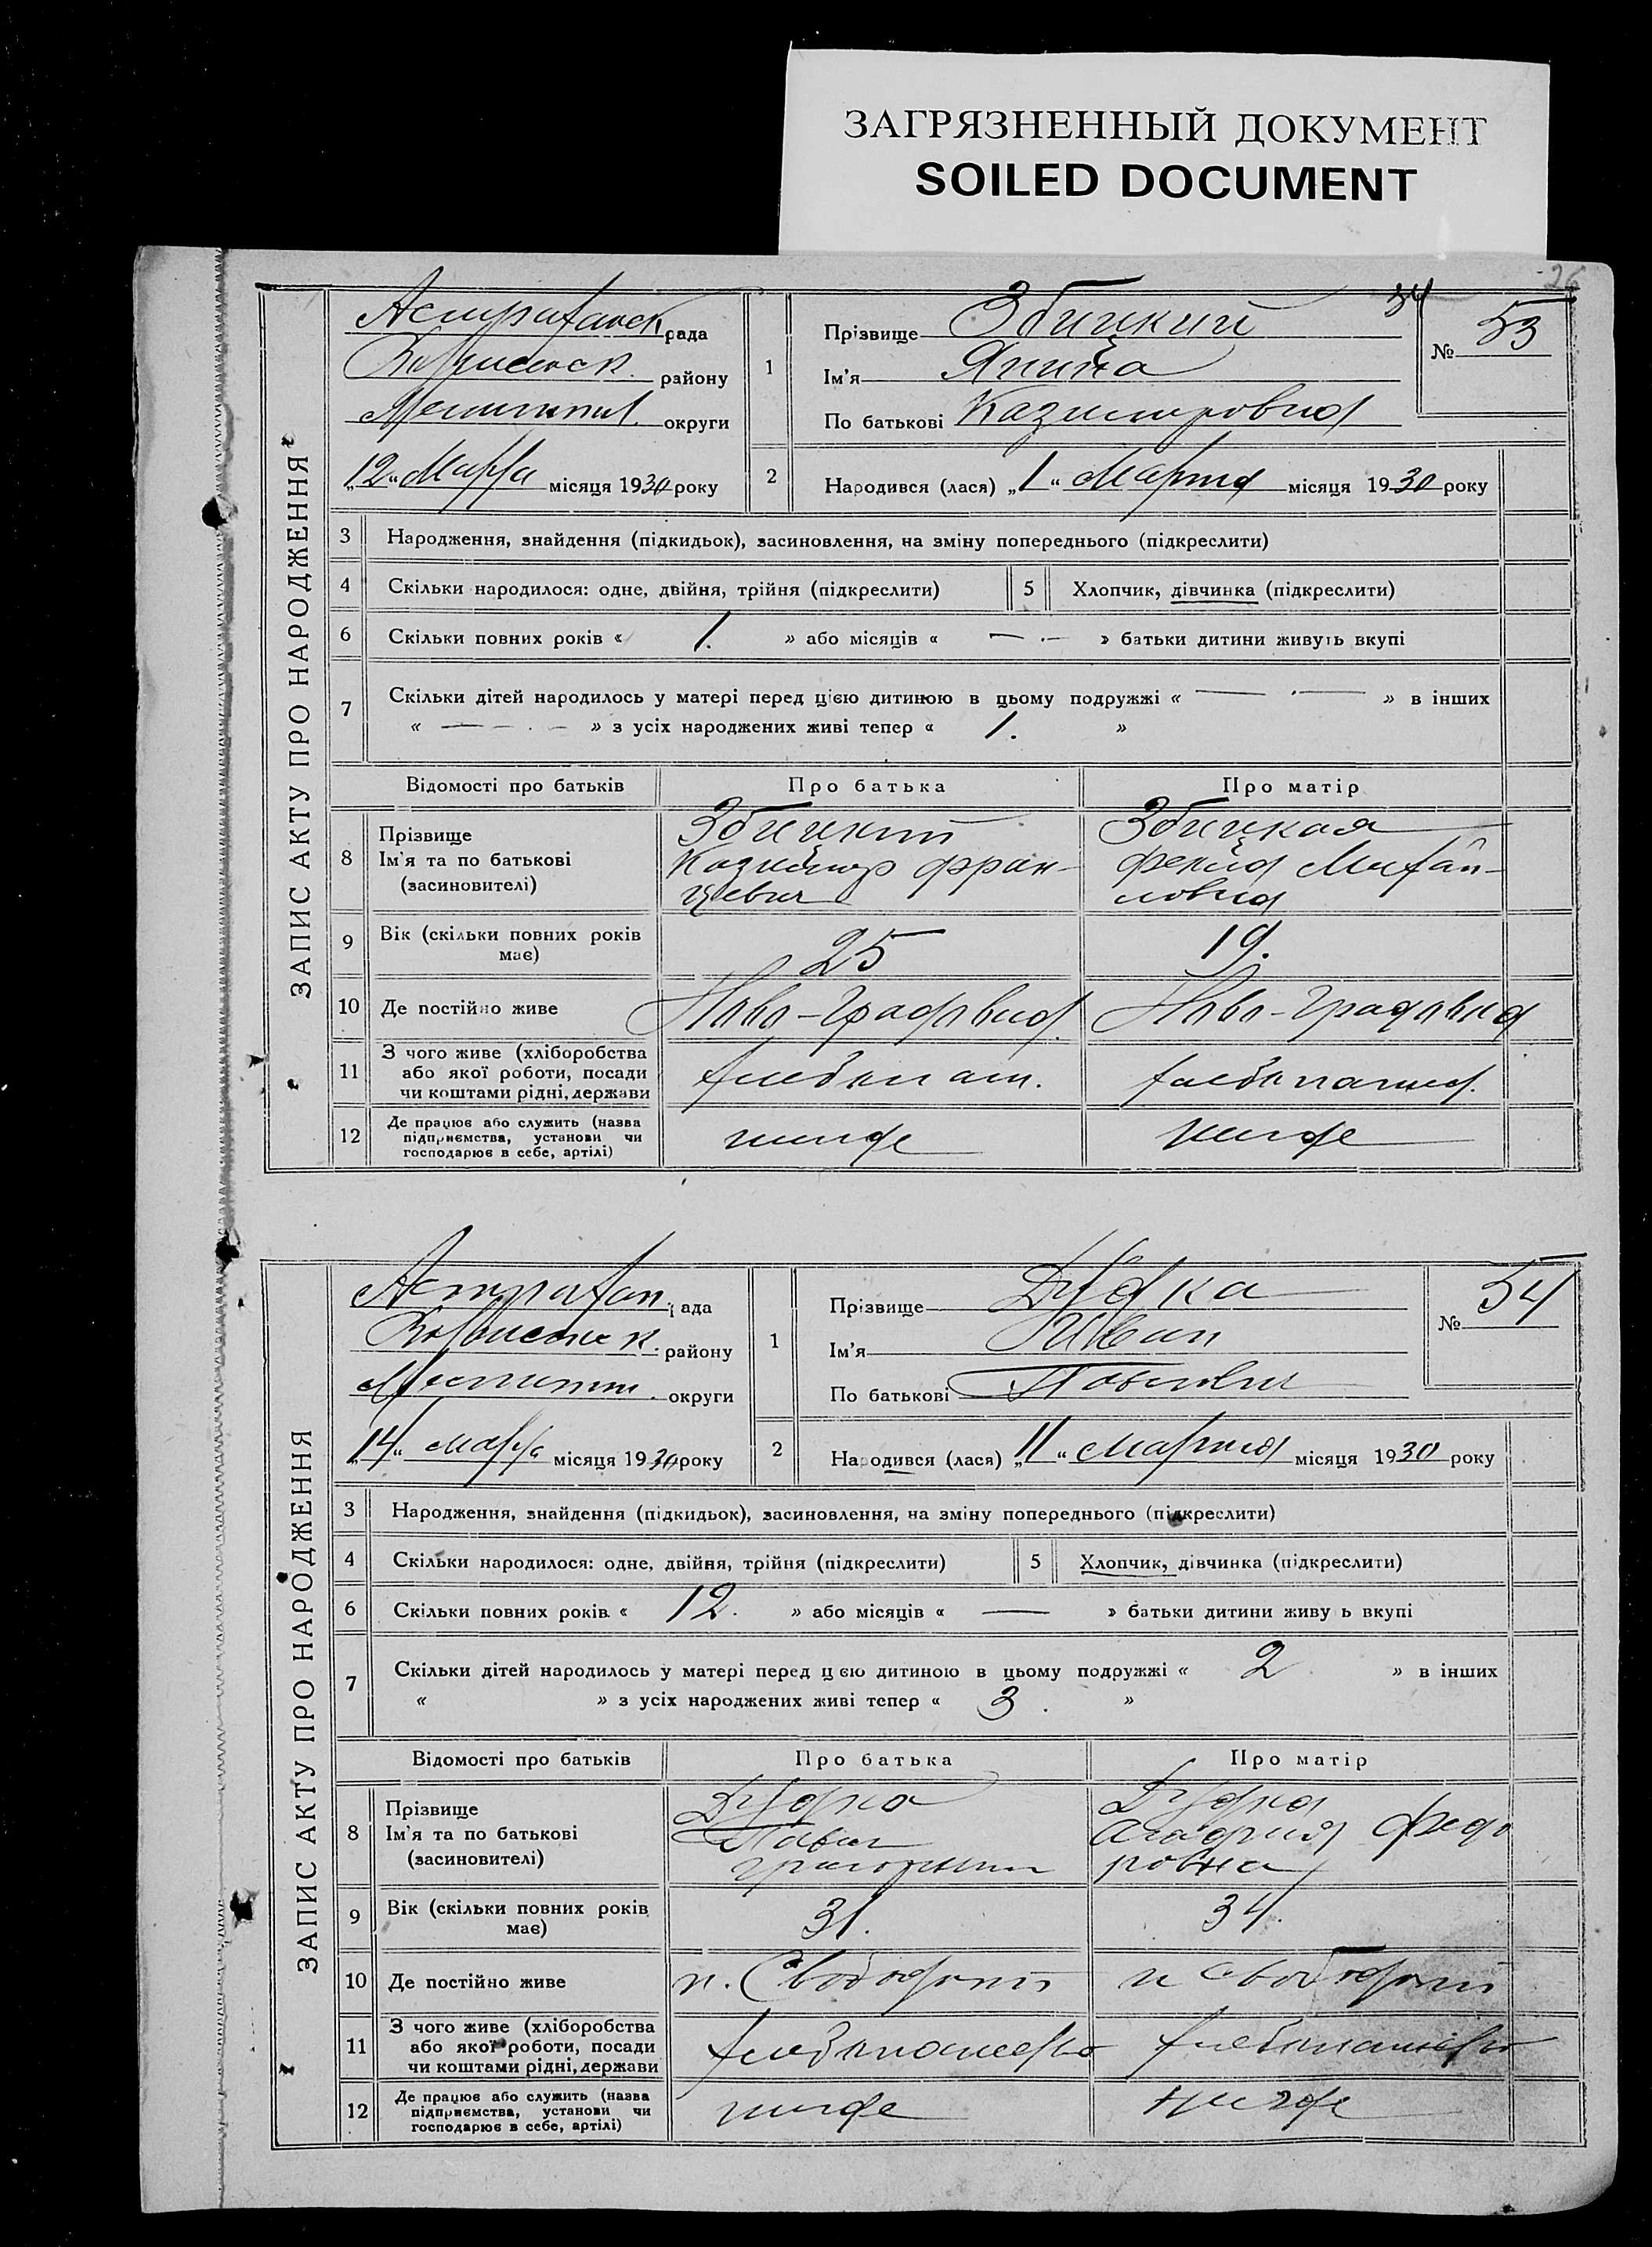 ЗАГРЯЗНЕННЫЙ ДОКУМЕНТ
SOILED DOCUMENT
26
34
ЗАПИС АКТУ ПРО НАРОДЖЕННЯ
Астраханск рада
району
округи
„12“ Марта місяця 1930 року
1
Прізвище Збицкий
Ім'я Янина
По батькові Казимировна
№ 53
2
Народився (лася) „1“ Марта місяця 1930 року
3 Народження, знайдення (підкидьок), засиновлення, на зміну попереднього (підкреслити)
4 Скільки народилося: одне, двійня, трійня (підкреслити) 5 Хлопчик, дівчинка (підкреслити)
6 Скільки повних років « 1. » або місяців « — · — » батьки дитини живуть вкупі
7 Скільки дітей народилось у матері перед цією дитиною в цьому подружжі « — · — » в інших
« — — · — » з усіх народжених живі тепер « 1. »
Відомості про батьків Про батька Про матір
8 Прізвище Ім'я та по батькові (засиновителі)
Збицкий Казимир Фран-
цевич
Збицкая Фекла Михай-
ловна
9 Вік (скільки повних років має) 25 19.
10 Де постійно живе Ново-Градовка Ново-Градовка
11 З чого живе (хліборобства
або якої роботи, посади
чи коштами рідні, держави
хлебопаш.
12 Де працює або служить (назва
підприємства, установи чи
господарює в себе, артілі)
нигде нигде
ЗАПИС АКТУ ПРО НАРОДЖЕННЯ
Астрахан. рада
району
округи
„14“ марта місяця 1930 року
1
Прізвище Дудка
Ім'я Иван
По батькові Павлович
№ 54
2
Народився (лася) „11“ Марта місяця 1930 року
3 Народження, знайдення (підкидьок), засиновлення, на зміну попереднього (підкреслити)
4 Скільки народилося: одне, двійня, трійня (підкреслити) 5 Хлопчик, дівчинка (підкреслити)
6 Скільки повних років « 12. » або місяців « — » батьки дитини живу ь вкупі
7 Скільки дітей народилось у матері перед цією дитиною в цьому подружжі « 2 » в інших
« » з усіх народжених живі тепер « 3. »
Відомості про батьків Про батька Про матір
8 Прізвище Ім'я та по батькові (засиновителі)
Дудка
Павел
Дудка
Федо
ровна
9 Вік (скільки повних років має) 31. 34.
10 Де постійно живе
11 З чого живе (хліборобства
або якої роботи, посади
чи коштами рідні, держави
хлебопашество хлебопашество
12 Де працює або служить (назва
підприємства, установи чи
господарює в себе, артілі)
нигде нигде